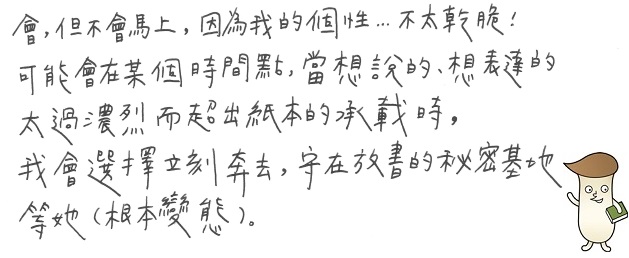 會,但不會馬上,因為我的個性…不太乾脆!
可能會在某個時間點,當想說的、想表達的
太過濃烈而超出紙本的承載時,
我會選擇立刻奔去,守在放書的秘密基地
等她(根本變態)。